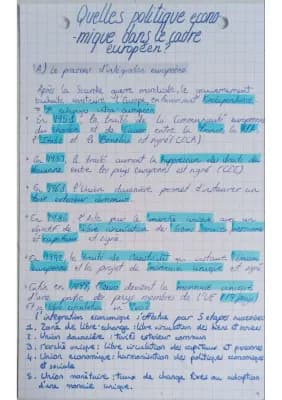 Quelles politique écono
-mique dans le cadre
européen ?
A) Le processus d'intégration européenne
Après la Seconde guerre mondiale, le gouvernement
souhaite construire l'Europe en favorisant l'indépendance
En 1951, le traité de la Communauté européenne
du charbon et de l'acier entre la France, la RFA,
l'Italie et le Benelux est signé (CECA)
En 1957, le traité suppression des droits de
douane entre les pays européens est signé (CEE)
En 1968 l'Union douanière permet d'instaurer un
tarif extérieur commun.
En 1986 l'Acte pour le marché unique avec un
objectif de libre circulation de biens, services, personnes
et capitaux est signé.
En 1992, le traité de Maastricht qui instaure l'Union
européenne et le projet de monnaie unique est signé
Enfin en 1999, l'euro devient la monnaie unique
d'une partie des pays membres de l'UE (19 pays)
L'intégration économique s'effectue par 5 étapes
1. Zone de libre-échange : libre circulation des biens et services
2. Union douanière : tarifs extérieur commun
3. Marché unique : libre circulation des capitaux et personnes
4. Union économique : harmonisation des politiques économiques
et sociale
5. Union monétaire : taux de change fixes ou adoption
d'une monnaie unique.